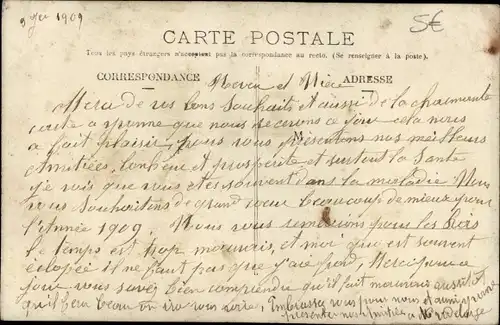 1909
5€
CARTE POSTALE
Tous les pays étrangers n'acceptent pas la correspondance au recto. (Se renseigner à la poste).
CORRESPONDANCE
ADRESSE
Neveu et Nièce
Merci de vos bons souhaits et aussi de la charmante
carte que nous recevons ce jour cela nous
a fait plaisir, nous vous présentons nos meilleurs
M
Amitiées, bonheur et prosperité et surtout la Santé
je vois que vous etes souvent dans la maladie Nous
vous souhaitons de grand cœur beaucoup de mieux pour
l'Année 1909. Nous vous remercions pour les bois
le temps est trop mauvais, et moi qui est souvent
éclopée il ne faut pas que j'aie froid, Merci pour
vous savez bien comprendre qu'il fait mauvais aussitôt
qu'il fera beau on ira vous voir, Embrassez vous pour nous
présente nos amitiés a